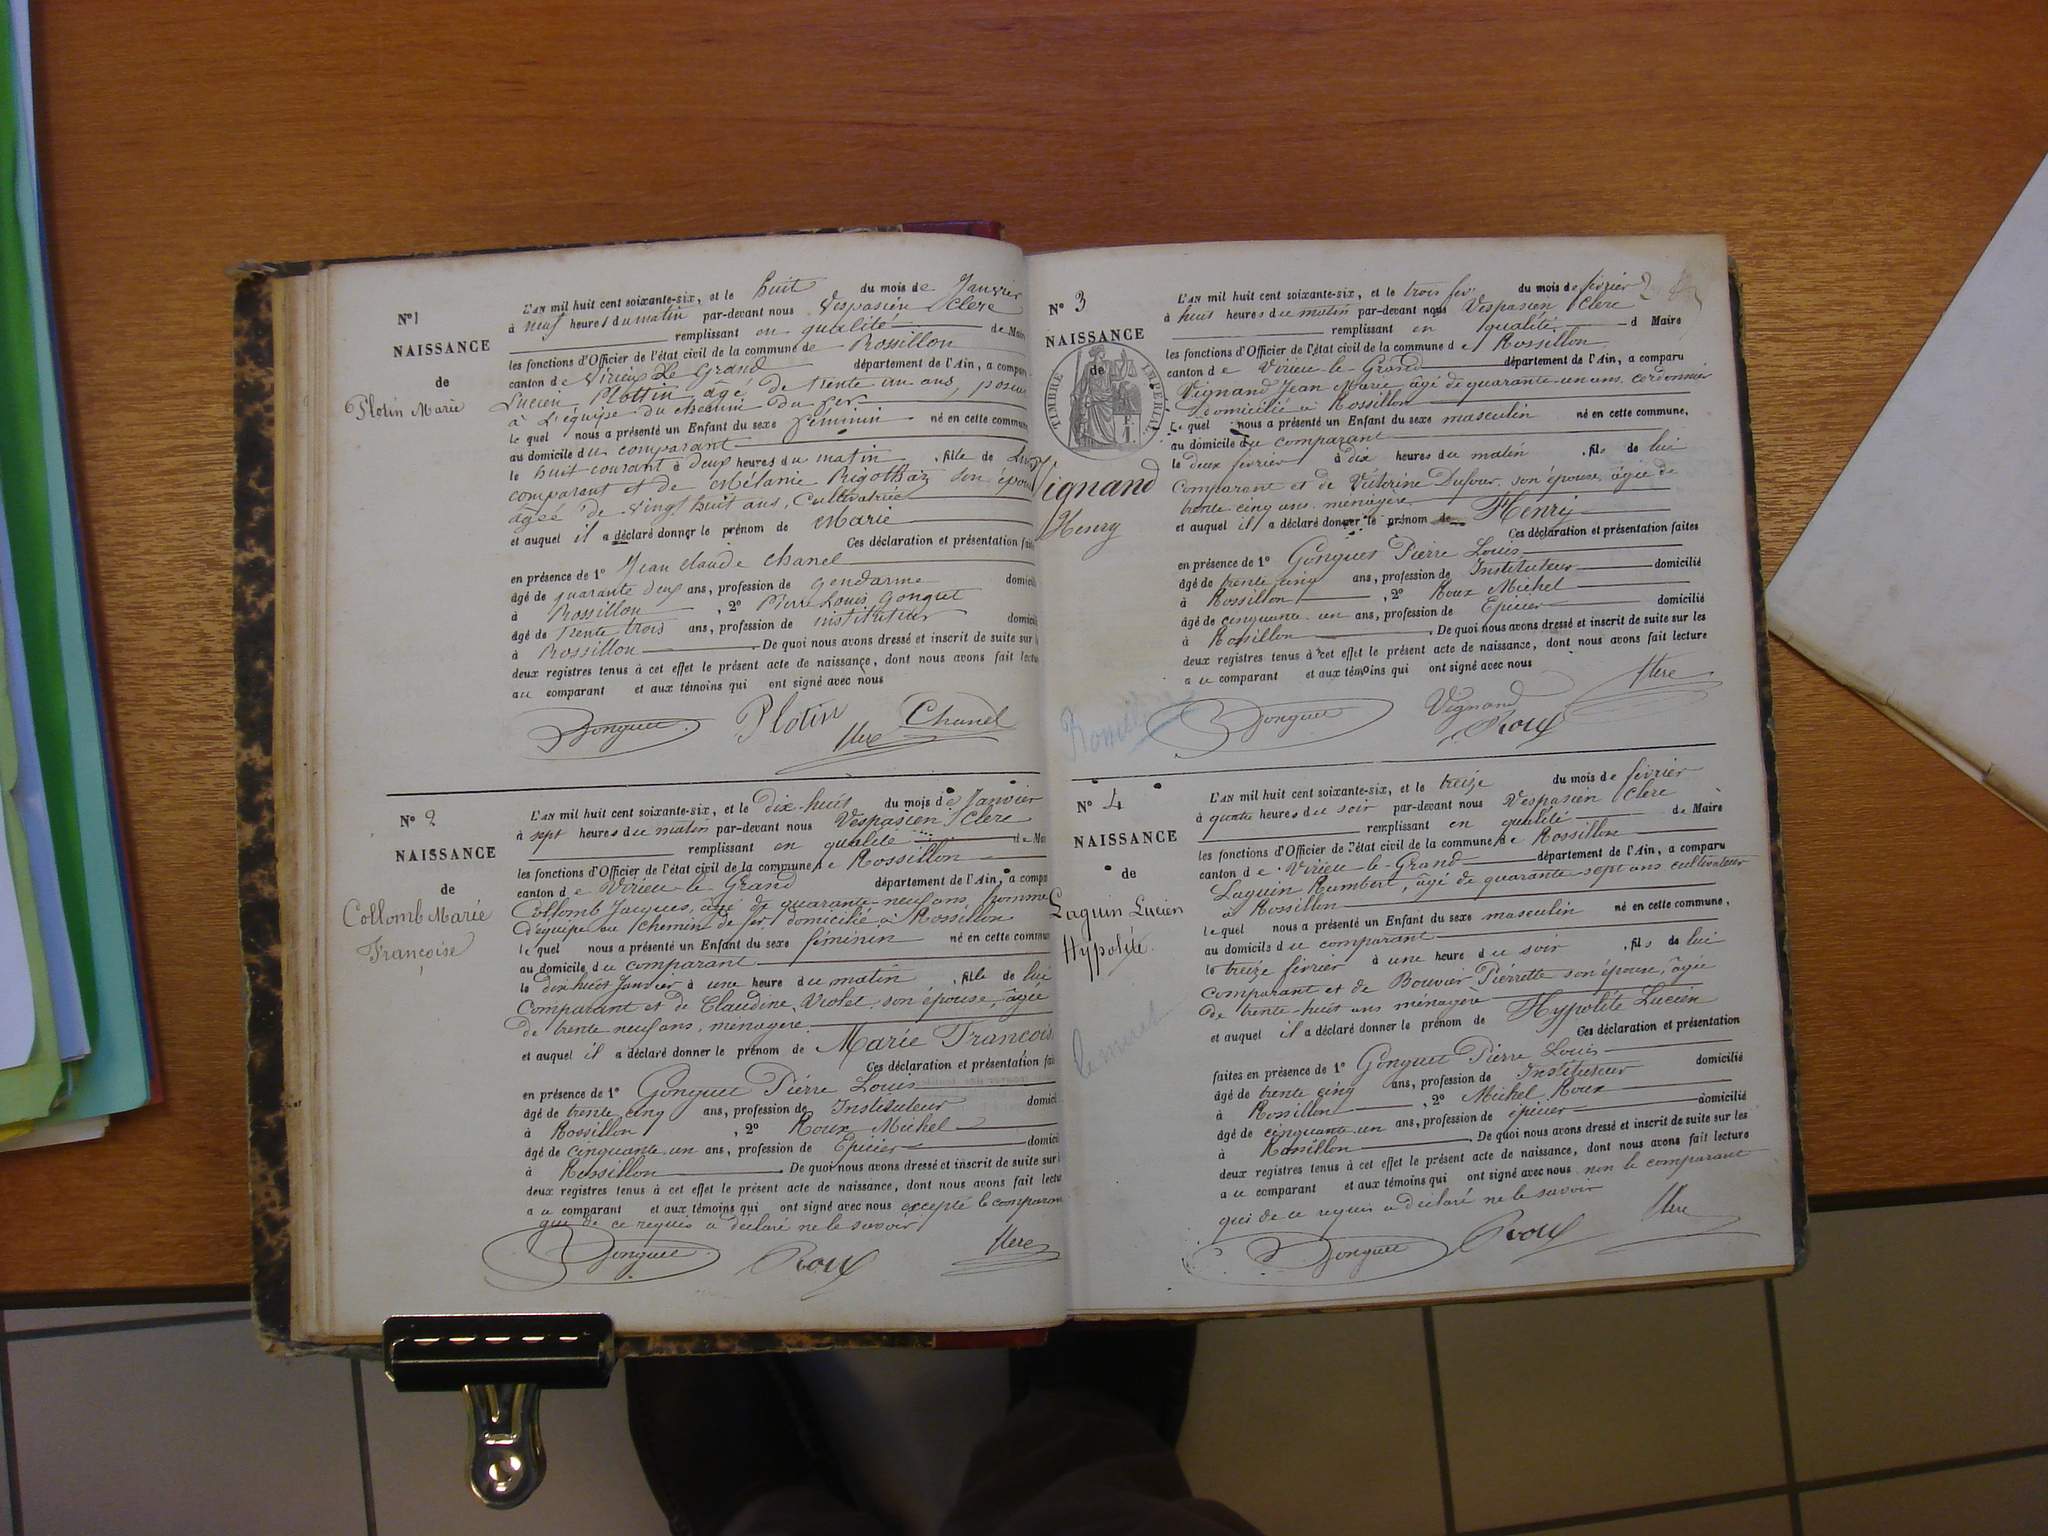 N° 1
NAISSANCE
de
Plotin Marie
L'AN mil huit cent soixante-six, et le huit du mois de Janvier
à neuf heures du matin par-devant nous Vespasien Clerc
remplissant en qualité de Maire
les fonctions d'Officier de l'état civil de la commune de Rossillon
canton de Virieu Le Grand département de l'Ain, a comparu
Lucien Plottin âgé de trente un ans, poseur
à L'équipe du chemin du fer
le quel nous a présenté un Enfant du sexe féminin né en cette commune,
au domicile du comparant
le huit courant à deux heures du matin , fille de lui
comparant et de Mélanie Rigothaz son épouse
âgée de vingt huit ans, Cultivatrice
et auquel il a déclaré donner le prénom de Marie
Ces déclaration et présentation faites
en présence de 1° Jean Claude Chanel
âgé de quarante deux ans, profession de gendarme domicilié
à Rossillon , 2° Pierre Louis Gonguet
âgé de trente trois ans, profession de instituteur domicilié
à Rossillon . De quoi nous avons dressé et inscrit de suite sur les
deux registres tenus à cet effet le présent acte de naissance, dont nous avons fait lecture
au comparant et aux témoins qui ont signé avec nous
Gonguet Plotin Clerc Chanel
N° 2
NAISSANCE
de
Collomb Marie
Françoise
L'AN mil huit cent soixante-six, et le dix-huit du mois de Janvier
à sept heures du matin par-devant nous Vespasien Clerc
remplissant en qualité de Maire
les fonctions d'Officier de l'état civil de la commune de Rossillon
canton de Virieu-le-Grand département de l'Ain, a comparu
Collomb Jacques, âgé de quarante-neuf ans, homme
d'équipe au chemin de fer, domicilié à Rossillon
le quel nous a présenté un Enfant du sexe féminin né en cette commune
au domicile du comparant
le dix huit Janvier à une heure du matin , fille de lui
Comparant et de Claudine Violet son épouse, âgée
de trente neuf ans, ménagère.
et auquel il a déclaré donner le prénom de Marie Françoise
Ces déclaration et présentation faites
en présence de 1° Gonguet Pierre Louis
âgé de trente cinq ans, profession de Instituteur domicilié
à Rossillon , 2° Roux Michel
âgé de cinquante un ans, profession de Epicier domicilié
à Rossillon . De quoi nous avons dressé et inscrit de suite sur les
deux registres tenus à cet effet le présent acte de naissance, dont nous avons fait lecture
au comparant et aux témoins qui ont signé avec nous excepté le comparant
qui de ce requis a déclaré ne le savoir
Gonguet Roux Clerc
N° 3
NAISSANCE
de
TIMBRE IMPÉRIAL
Vignand
Henry
L'AN mil huit cent soixante-six, et le trois fév. du mois de février 2
à huit heures du matin par-devant nous Vespasien Clerc
remplissant en qualité d Maire
les fonctions d'Officier de l'état civil de la commune de Rossillon
canton de Virieu-le-Grand département de l'Ain, a comparu
Vignand Jean Marie, âgé de quarante-un ans, cordonnier
domicilié à Rossillon
le quel nous a présenté un Enfant du sexe masculin né en cette commune,
au domicile du comparant
le deux février à dix heures du matin , fils de lui
Comparant et de Victorine Dufour, son épouse, âgée de
trente cinq ans, ménagère
et auquel il a déclaré donner le prénom de Henry
Ces déclaration et présentation faites
en présence de 1° Gonguet Pierre Louis
âgé de trente cinq ans, profession de Instituteur domicilié
à Rossillon , 2° Roux Michel
âgé de cinquante un ans, profession de Epicier domicilié
à Rossillon . De quoi nous avons dressé et inscrit de suite sur les
deux registres tenus à cet effet le présent acte de naissance, dont nous avons fait lecture
au comparant et aux témoins qui ont signé avec nous
Gonguet Vignand Roux Clerc
N° 4
NAISSANCE
de
Laguin Lucien
Hypolite.
L'AN mil huit cent soixante-six, et le treize du mois de février
à quatre heures du soir par-devant nous Vespasien Clerc
remplissant en qualité de Maire
les fonctions d'Officier de l'état civil de la commune de Rossillon
canton de Virieu-le-Grand département de l'Ain, a comparu
Laguin Rambert, âgé de quarante sept ans cultivateur
à Rossillon
le quel nous a présenté un Enfant du sexe masculin né en cette commune,
au domicile du comparant
le treize février à une heure du soir , fils de lui
comparant et de Bouvier Pierrette son épouse, âgée
de trente-huit ans ménagère
et auquel il a déclaré donner le prénom de Hypolite Lucien
Ces déclaration et présentation
faites en présence de 1° Gonguet Pierre Louis
âgé de trente cinq ans, profession de Instituteur domicilié
à Rossillon , 2° Michel Roux
âgé de cinquante un ans, profession de épicier domicilié
à Rossillon . De quoi nous avons dressé et inscrit de suite sur les
deux registres tenus à cet effet le présent acte de naissance, dont nous avons fait lecture
au comparant et aux témoins qui ont signé avec nous non le comparant
qui de ce requis a déclaré ne le savoir
Gonguet Roux Clerc